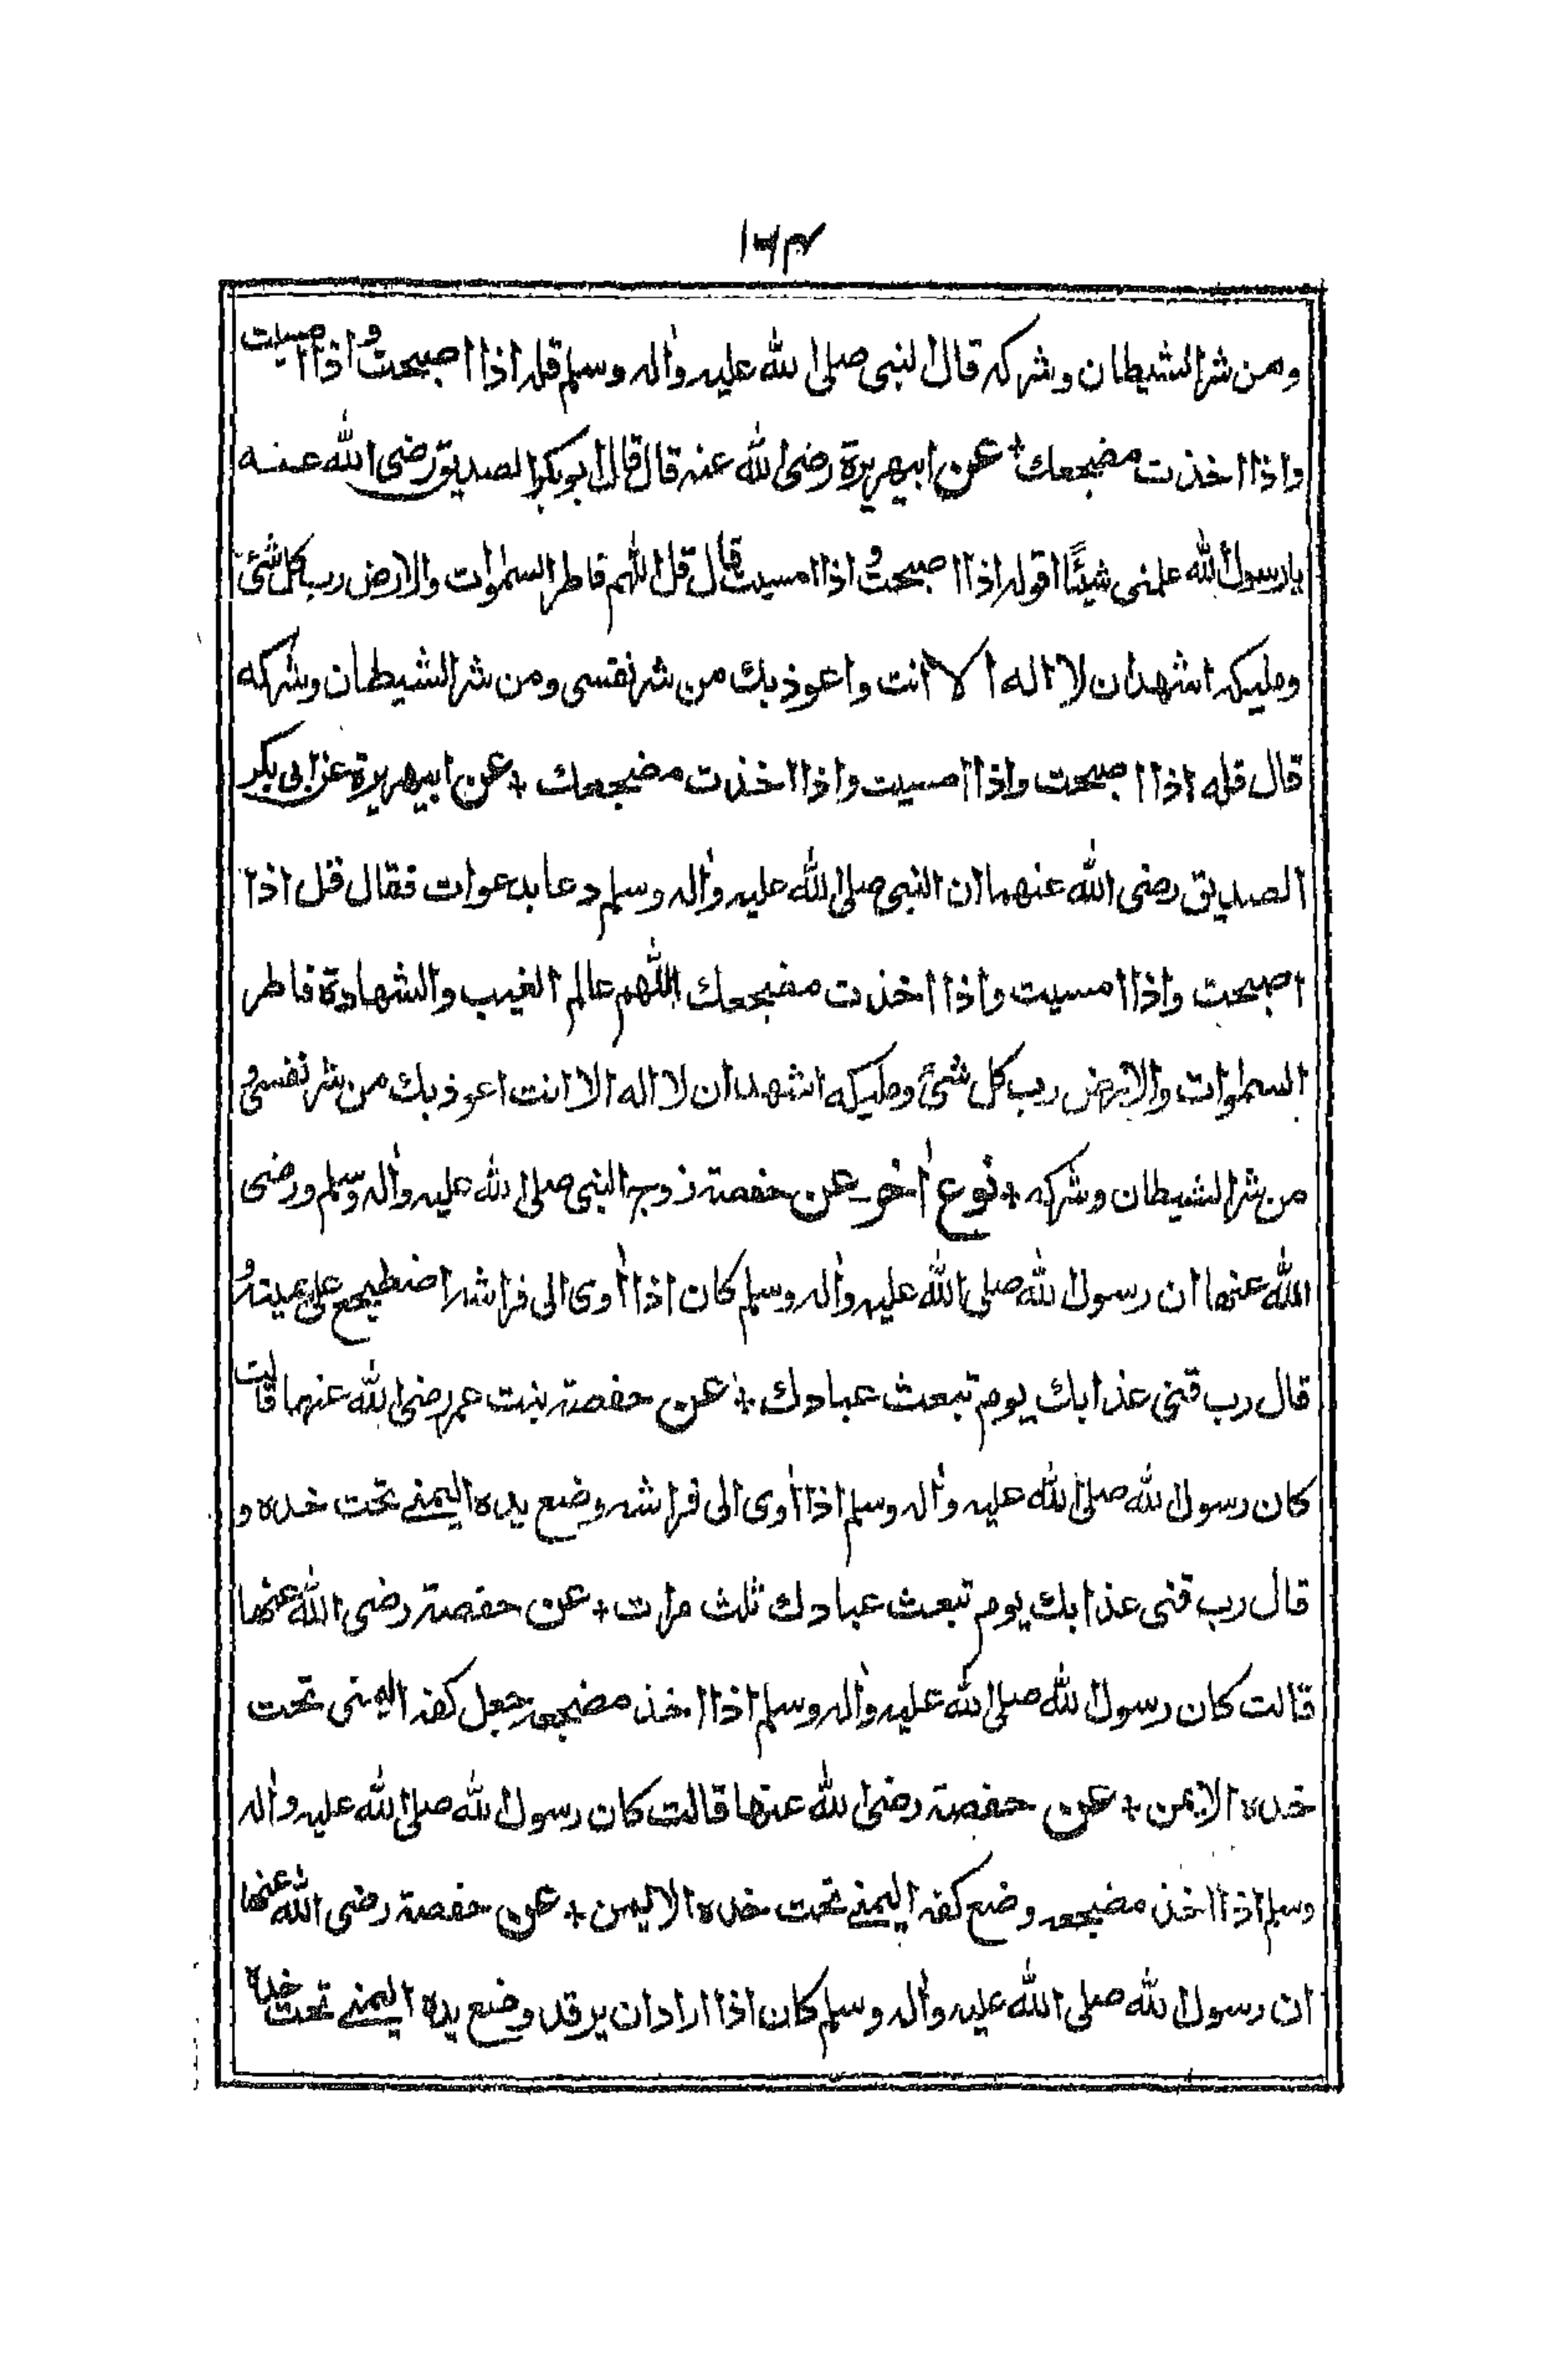 ١٦٣
ومن شر الشيطان وشركه قال النبى صلى الله عليه واٰله وسلم قله اذا اصبحت و اذا امسيت
واذا اخذت مضجعك + عن ابيهريرة رضى الله عنه قال قال ابو بكر الصديق رضى الله عنه
يا رسول الله علمنى شيئًا اقوله اذا اصبحت و اذا امسيت قال قل اللهم فاطر السمٰوات والارض رب كل شئ
ومليكه اشهد ان لا اله الا انت واعوذ بك من شر نفسى ومن شر الشيطان وشركه
قال قله اذا اصبحت واذا امسيت واذا اخذت مضجعك + عن ابيهريرة عن ابى بكر
الصديق رضى الله عنهما ان النبى صلى الله عليه واٰله وسلم دعا بدعوات فقال قل اذا
اصبحت واذا امسيت واذا اخذت مضجعك اللهم عالم الغيب والشهادة فاطر
السمٰوات والارض رب كل شئ ومليكه اشهد ان لا اله الا انت اعوذ بك من شر نفسى و
من شر الشيطان وشركه + نوع اٰخر عن حفصة زوج النبى صلى الله عليه واٰله وسلم ورضى
الله عنها ان رسول الله صلى الله عليه واٰله وسلم كان اذا اٰوى الى فراشه اضطجع على يمينه و
قال رب قنى عذابك يوم تبعث عبادك + عن حفصة بنت عمر رضى الله عنهما قالت
كان رسول الله صلى الله عليه واٰله وسلم اذا اٰوى الى فراشه وضع يده اليمنے تحت خده و
قال رب قنى عذابك يوم تبعث عبادك ثلث مرات + عن حفصة رضى الله عنها
قالت كان رسول الله صلى الله عليه واٰله وسلم اذا اخذ مضجعه جعل كفه اليمنى تحت
خده الايمن + عن حفصة رضى الله عنها قالت كان رسول الله صلى الله عليه واٰله
وسلم اذا اخذ مضجعه وضع كفه اليمنے تحت خده الايمن + عن حفصة رضى الله عنها
ان رسول الله صلى الله عليه واٰله وسلم كان اذا اراد ان يرقد وضع يده اليمنے تحت خده